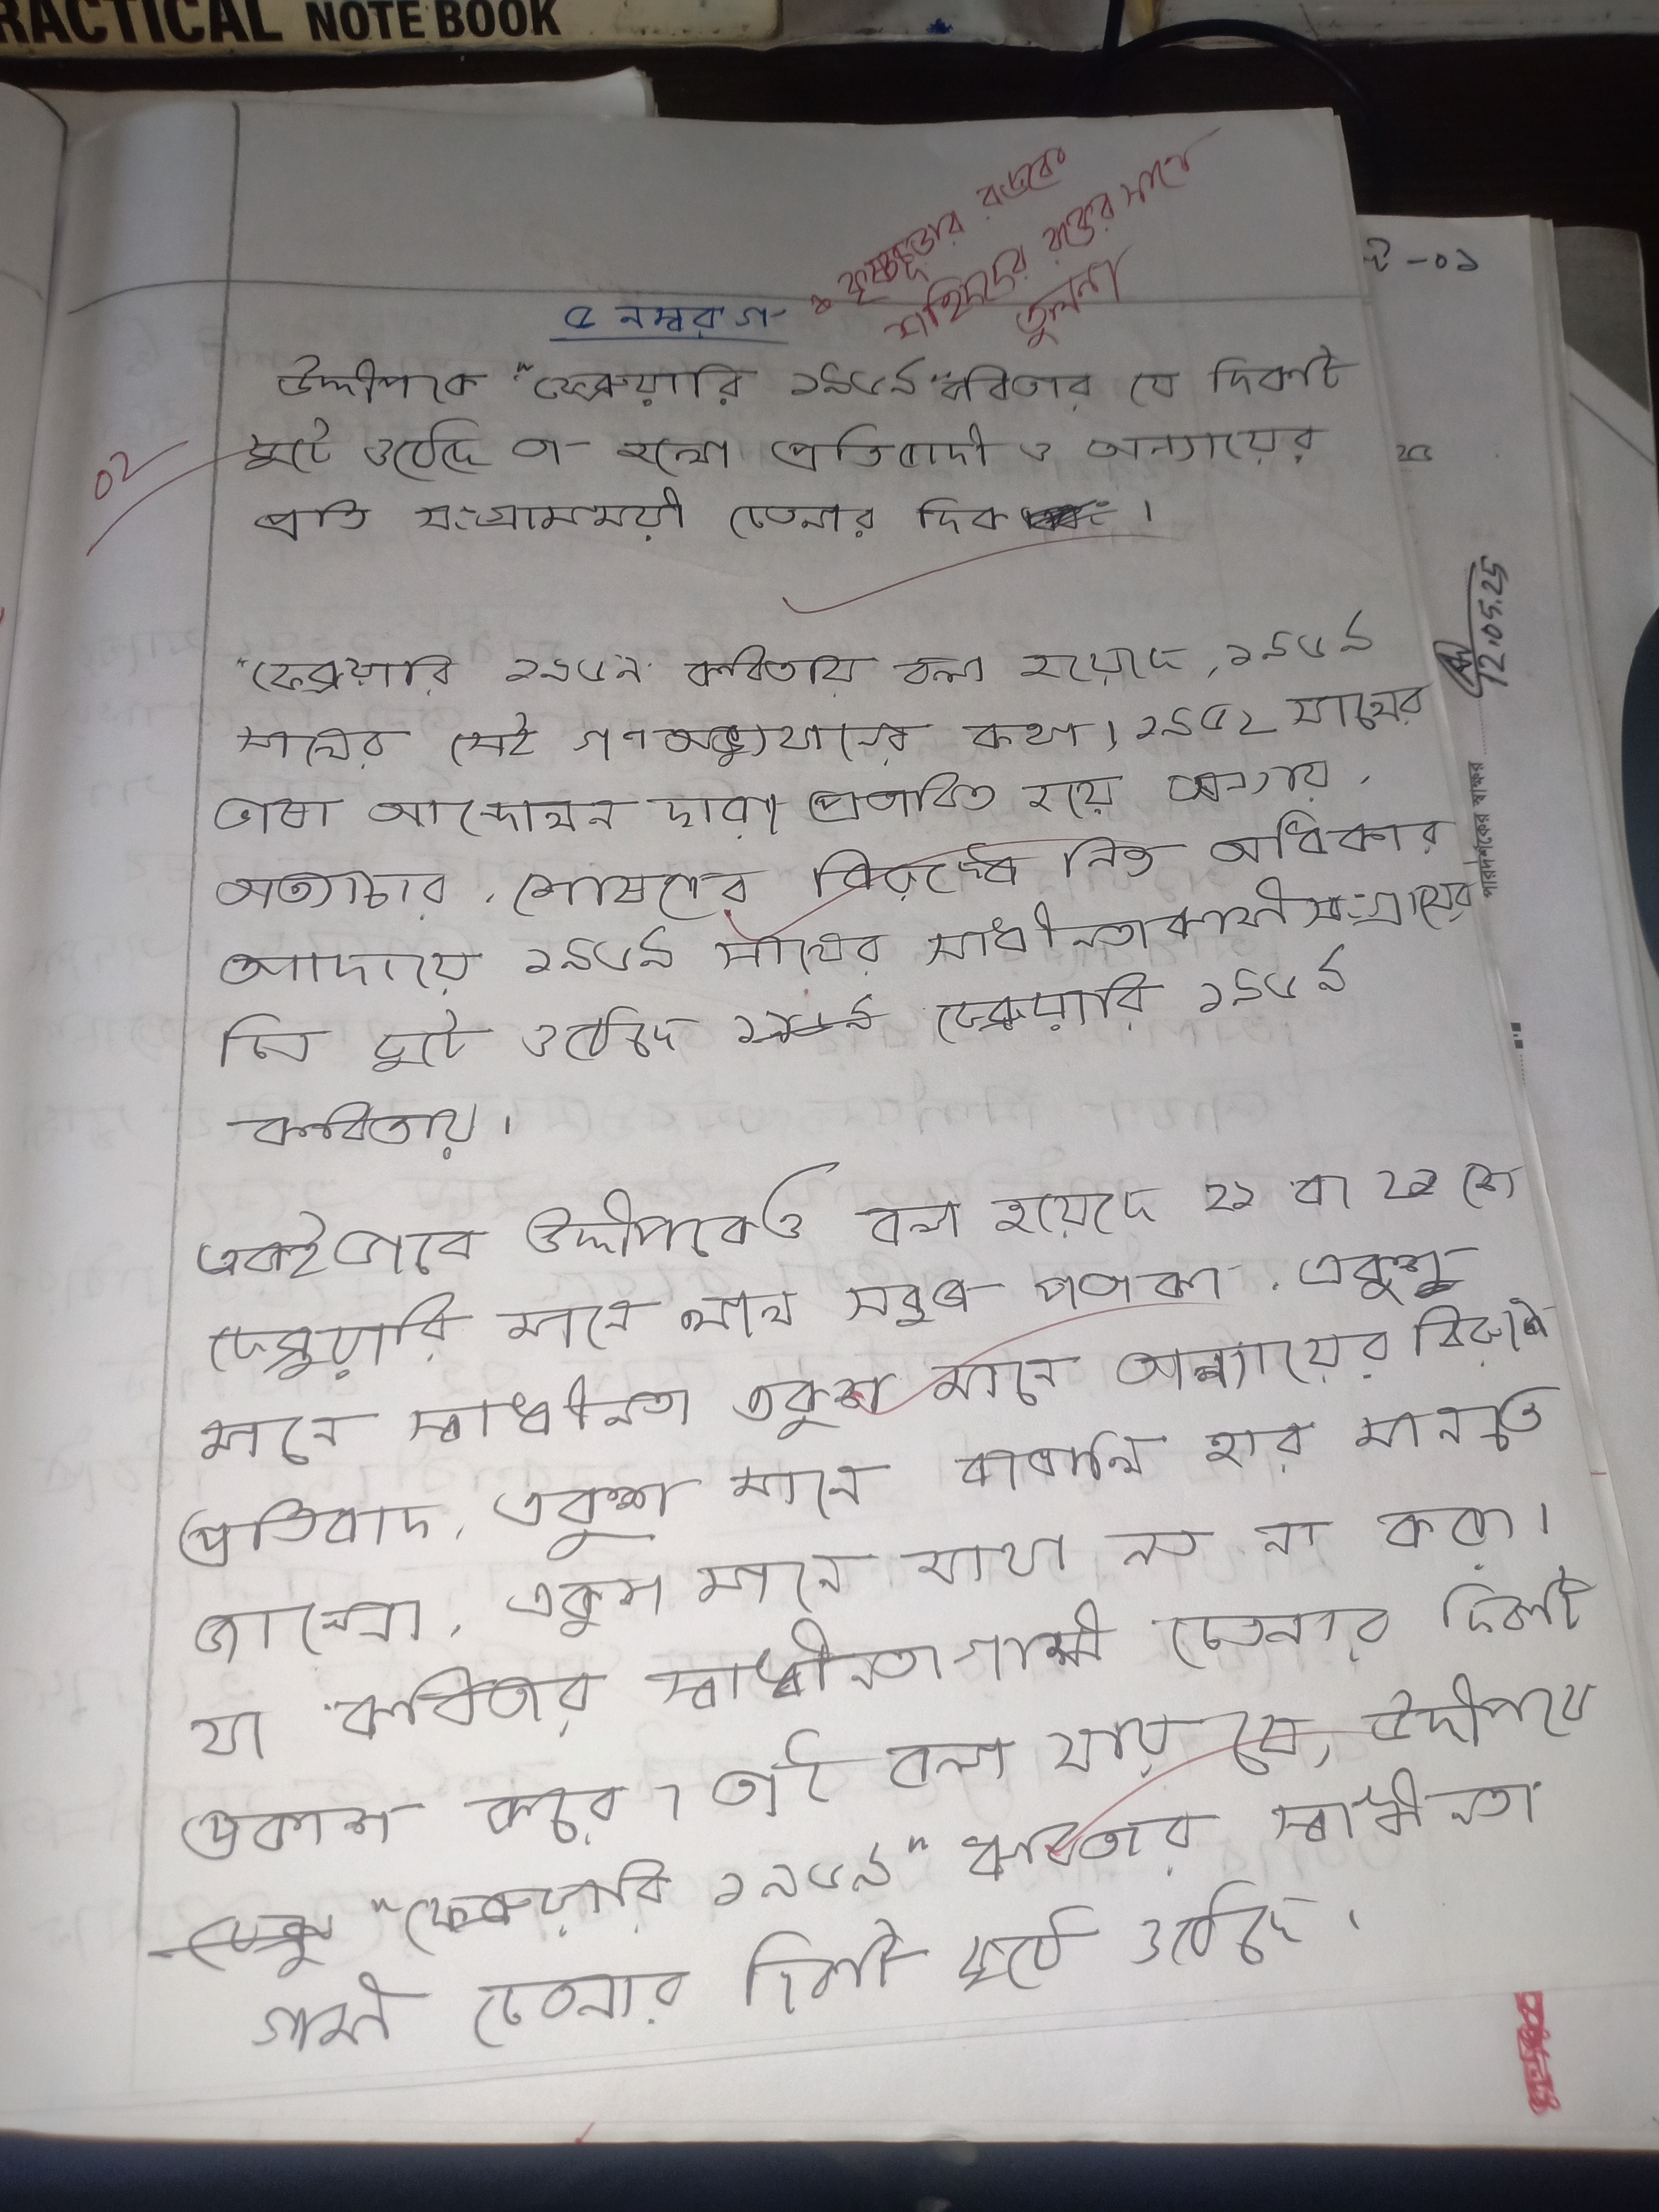 RACTICAL NOTE BOOK
কৃষ্ণচূড়ার রঙকে
শহিদদের রক্তের সাথে
তুলনা
-০১
৫ নম্বর গ
উদ্দীপকে "ফেব্রুয়ারি ১৯৬৯" কবিতার যে দিকটি
02
ফুটে ওঠেছে তা হলো প্রতিবাদী ও অন্যায়ের
প্রতি সংগ্রামময়ী চেতনার দিক।
12.05.25
"ফেব্রুয়ারি ১৯৬৯" কবিতায় বলা হয়েছে, ১৯৬৯
সালের সেই গণঅভ্যুত্থানের কথা। ১৯৫২ সালের
ভাষা আন্দোলন দ্বারা প্রভাবিত হয়ে অন্যায়,
অত্যাচার, শোষণের বিরুদ্ধে নিজ অধিকার
পরিদর্শকের স্বাক্ষর
আদায়ে ১৯৬৯ সালের স্বাধীনতাকামী সংগ্রামের
চিত্র ফুটে ওঠেছে ১৯৬৯ ফেব্রুয়ারি ১৯৬৯
কবিতায়।
একইভাবে উদ্দীপকেও বলা হয়েছে ২১ বা ২১ শে
ফেব্রুয়ারি মানে লাল সবুজ পতাকা, একুশ
মানে স্বাধীনতা একুশ মানে অন্যায়ের বিরুদ্ধে
প্রতিবাদ, একুশ মানে বাঙালি হার মানতে
জানেনা, একুশ মানে মাথা নত না করা।
যা কবিতার স্বাধীনতাগামী চেতনার দিকটি
প্রকাশ করে। তাই বলা যায় যে, উদ্দীপকে
"ফেব্রুয়ারি ১৯৬৯" কবিতার স্বাধীনতা
গামী চেতনার দিকটি ফুটে ওঠেছে।